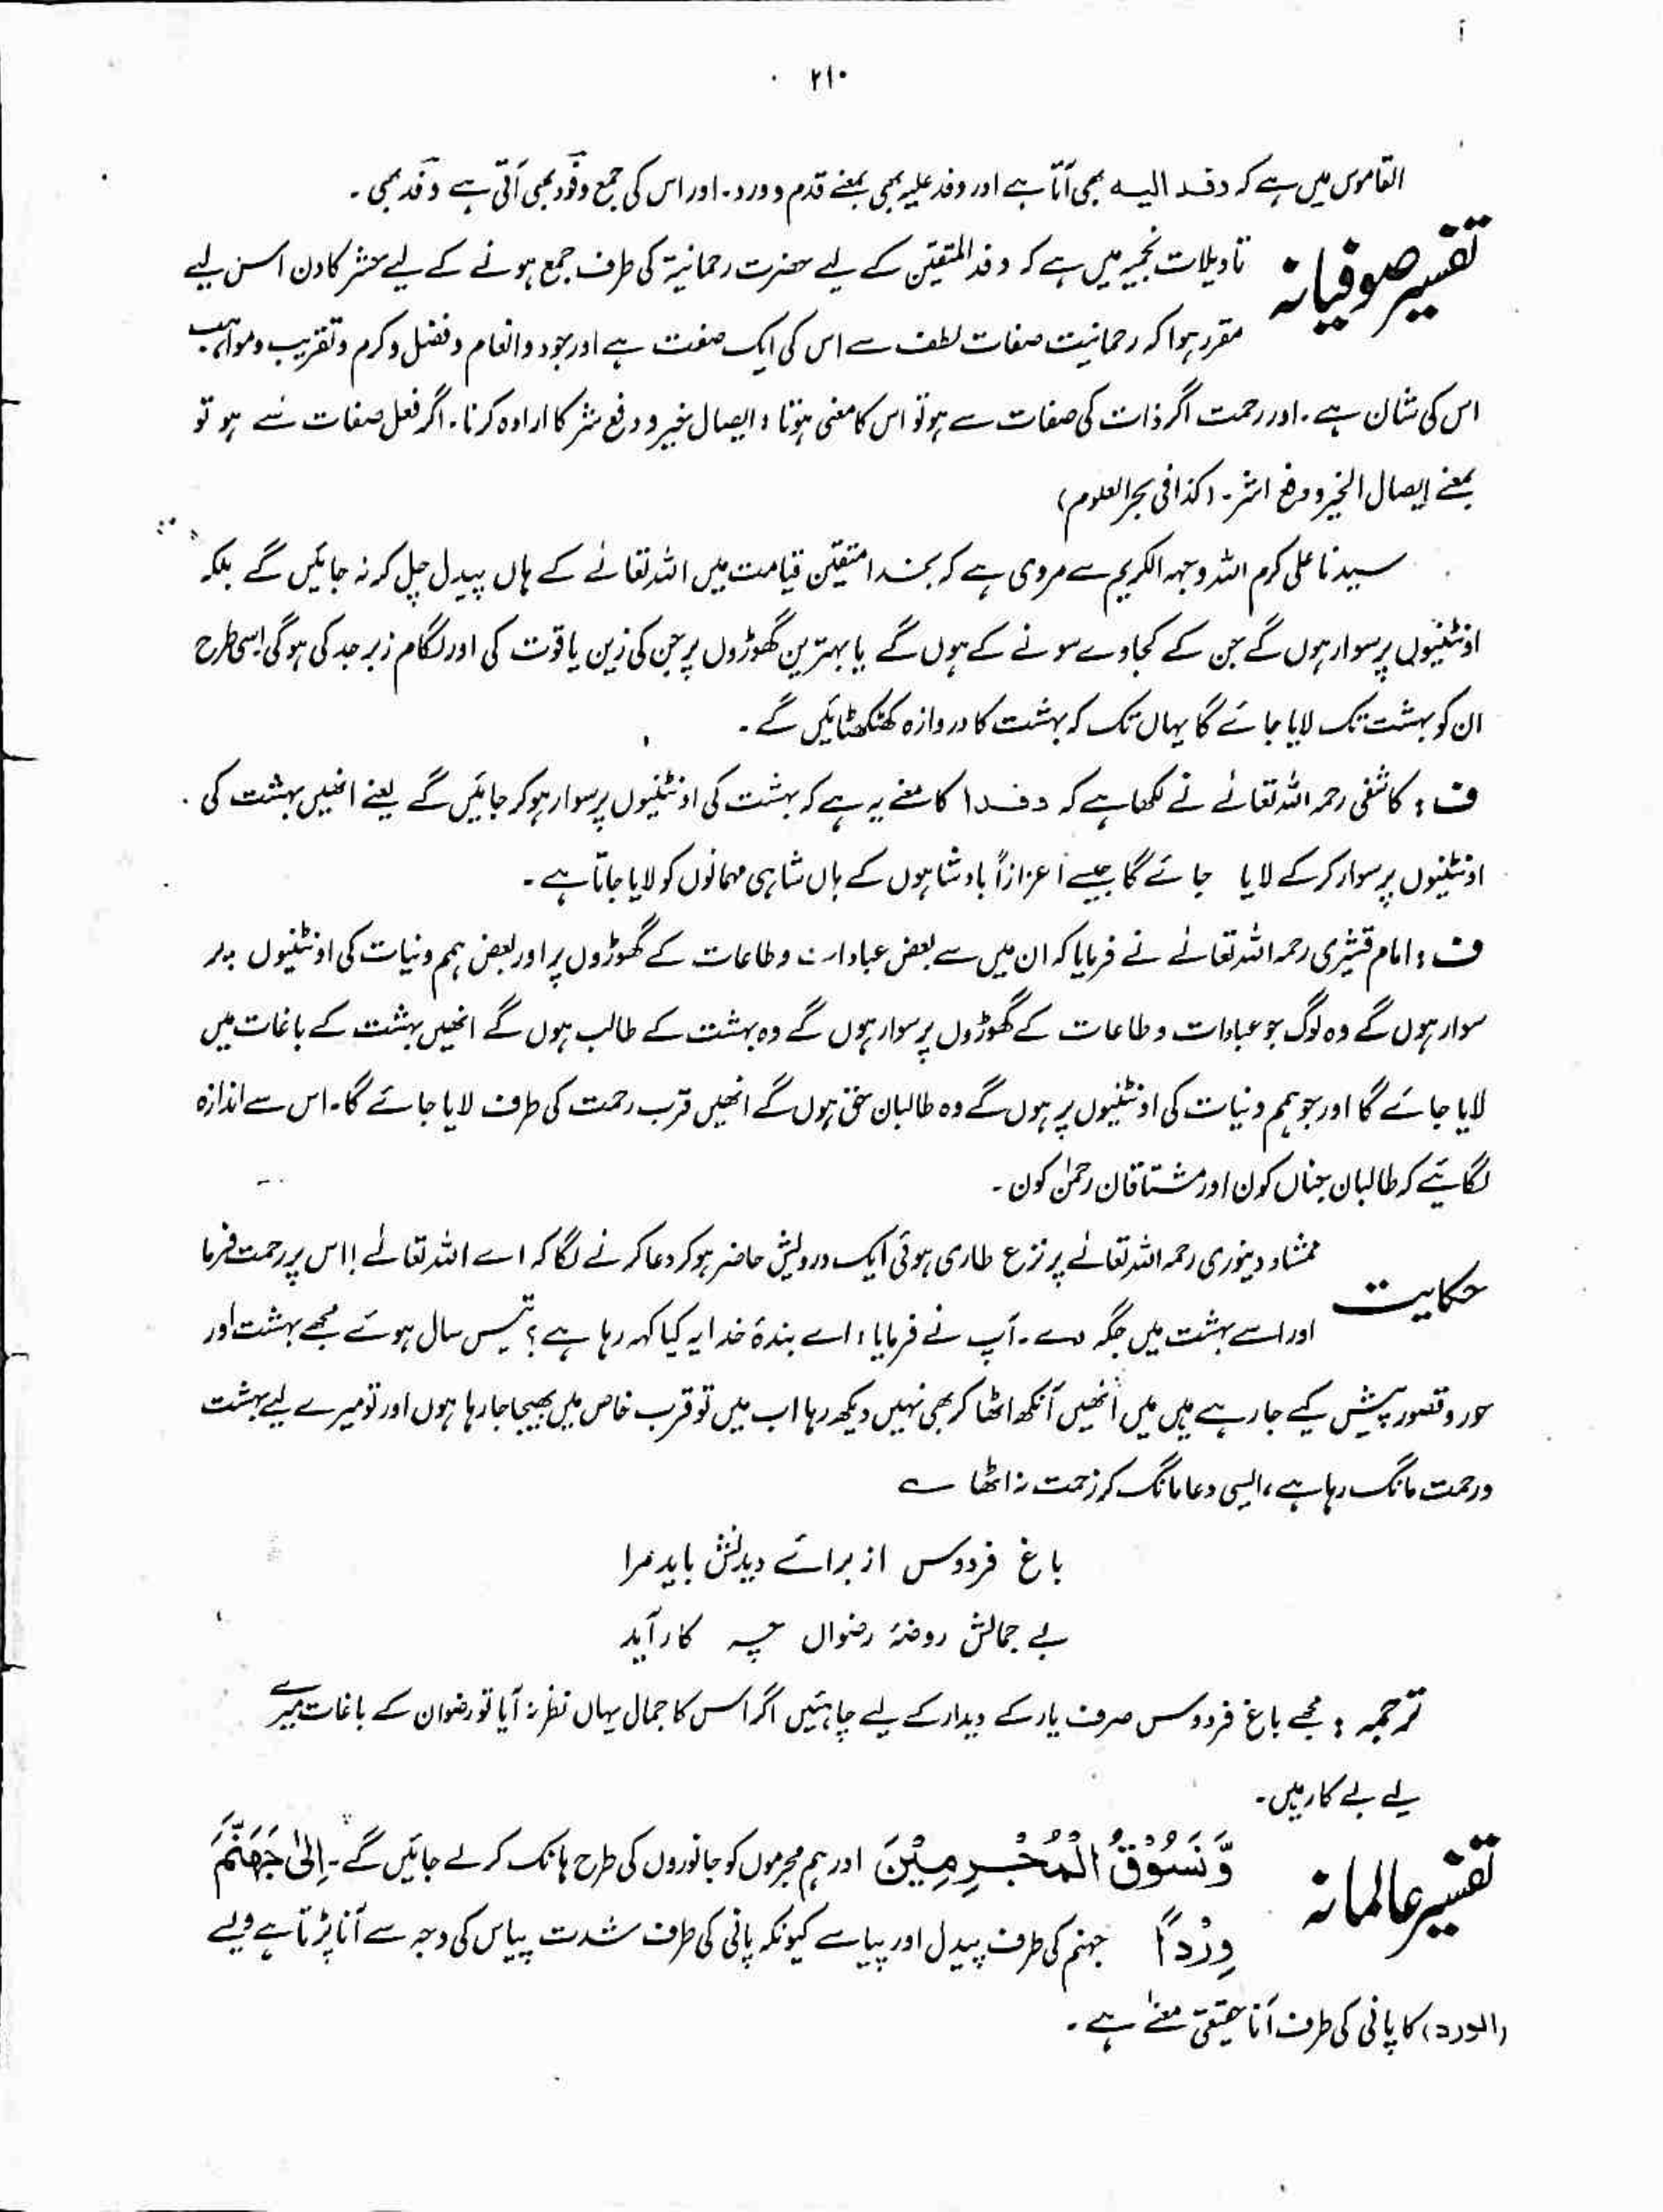 ۲۱۰
القاموس میں ہے کہ وفد الیہ بھی آتا ہے اور وفد علیہ بھی بمعنے قدم و ورد۔ اور اس کی جمع وفود بھی آتی ہے وفد بھی۔
تفسیر صوفیانہ
تاویلات نجمیہ میں ہے کہ وفد المتقین کے لیے حضرت رحمانیۃ کی طرف جمع ہونے کے لیے حشر کا دن اس لیے
مقرر ہوا کہ رحمانیت صفات لطف سے اس کی ایک صفت ہے اور جود و انعام و فضل و کرم و تقریب و مواہب
اس کی شان ہے۔ اور رحمت اگر ذات کی صفات سے ہو تو اس کا معنی ہوتا، ایصال خیر و دفع شر کا ارادہ کرنا۔ اگر فعل صفات سے ہو تو
بمعنے ایصال الخیر و دفع الشر۔ (کذا فی بحر العلوم)
سیدنا علی کرم اللہ وجہہ الکریم سے مروی ہے کہ بخدا متقین قیامت میں اللہ تعالےٰ کے ہاں پیدل چل کر نہ جائیں گے بلکہ
اونٹنیوں پر سوار ہوں گے جن کے کجاوے سونے کے ہوں گے یا بہترین گھوڑوں پر جن کی زین یاقوت کی اور لگام زبرجد کی ہوگی اسی طرح
ان کو بہشت تک لایا جائے گا یہاں تک کہ بہشت کا دروازہ کھٹکھٹائیں گے۔
ف : کاشفی رحمہ اللہ تعالےٰ نے لکھا ہے کہ وفدا کا معنے یہ ہے کہ بہشت کی اونٹنیوں پر سوار ہو کر جائیں گے یعنے انھیں بہشت کی
اونٹنیوں پر سوار کرکے لایا جائے گا جیسے اعزازاً بادشاہوں کے ہاں شاہی مہمانوں کو لایا جاتا ہے۔
ف : امام قشیری رحمہ اللہ تعالےٰ نے فرمایا کہ ان میں سے بعض عبادات و طاعات کے گھوڑوں پر اور بعض ہمم و نیات کی اونٹنیوں پر
سوار ہوں گے وہ لوگ جو عبادات و طاعات کے گھوڑوں پر سوار ہوں گے وہ بہشت کے طالب ہوں گے انھیں بہشت کے باغات میں
لایا جائے گا اور جو ہمم و نیات کی اونٹنیوں پر ہوں گے وہ طالبان حق ہوں گے انھیں قرب رحمت کی طرف لایا جائے گا۔ اس سے اندازہ
لگائیے کہ طالبان جناں کون اور مشتاقان رحمٰن کون۔
حکایت
ممشاد دینوری رحمہ اللہ تعالےٰ پر نزع طاری ہوئی ایک درویش حاضر ہو کر دعا کرنے لگا کہ اے اللہ تعالےٰ! اس پر رحمت فرما
اور اسے بہشت میں جگہ دے۔ آپ نے فرمایا، اے بندۂ خدا یہ کیا کہہ رہا ہے؟ تیس سال ہوئے مجھے بہشت اور
حور و قصور پیش کیے جا رہے ہیں میں انھیں آنکھ اٹھا کر بھی نہیں دیکھ رہا اب میں تو قرب خاص میں بھیجا جا رہا ہوں اور تو میرے لیے بہشت
و رحمت مانگ رہا ہے، ایسی دعا مانگ کر زحمت نہ اٹھا ؎
باغ فردوس از برائے دیدنش باید مرا
بے جمالش روضۂ رضواں چہ کار آید
ترجمہ : مجھے باغ فردوس صرف یار کے دیدار کے لیے چاہئیں اگر اس کا جمال یہاں نظر نہ آیا تو رضوان کے باغات میرے
لیے بے کار ہیں۔
تفسیر عالمانہ
وَّنَسُوْقُ الْمُجْرِمِيْنَ اور ہم مجرموں کو جانوروں کی طرح ہانک کر لے جائیں گے۔ اِلٰی جَهَنَّمَ
وِرْدًا جہنم کی طرف پیدل اور پیاسے کیونکہ پانی کی طرف شدت پیاس کی وجہ سے آنا پڑتا ہے ویسے
(الورد) کا پانی کی طرف آنا حقیقی معنےٰ ہے۔